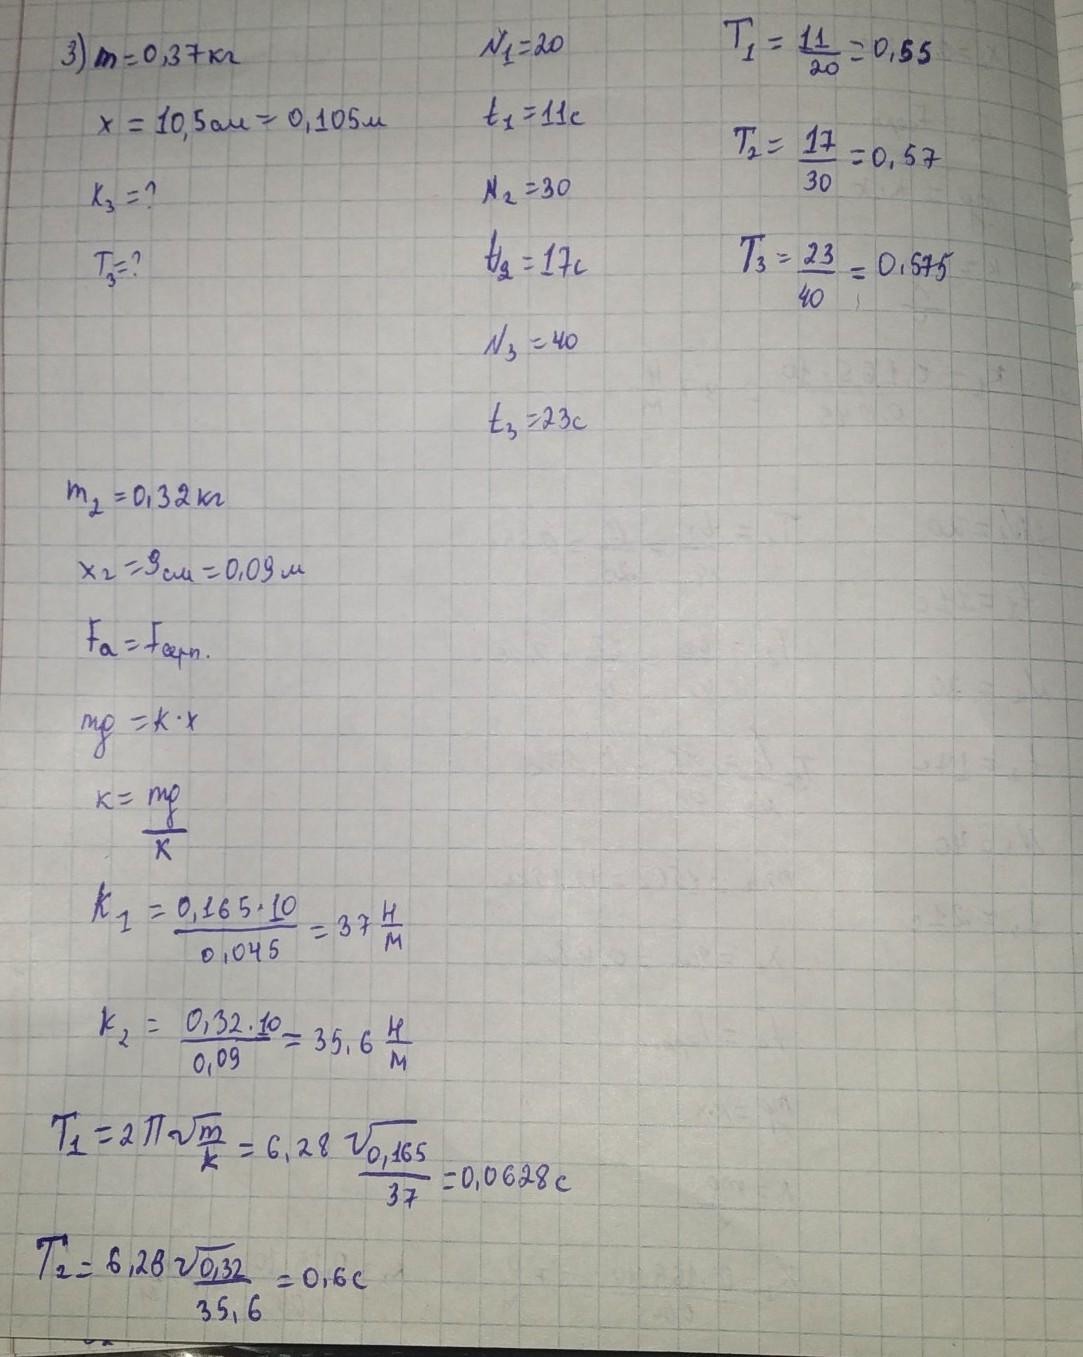 3) m = 0,37 кг
x = 10,5 см = 0,105 м
K₃ = ?
T₃ = ?
N₁ = 20
t₁ = 11 с
N₂ = 30
t₂ = 17 с
N₃ = 40
t₃ = 23 с
T₁ = 11/20 = 0,55
T₂ = 17/30 = 0,57
T₃ = 23/40 = 0,575
m₂ = 0,32 кг
x₂ = 9 см = 0,09 м
Fа = 
mg = k · x
k = mg/K
K₁ = 0,165 · 10/0,045 = 37 Н/м
K₂ = 0,32 · 10/0,09 = 35,6 Н/м
T₁ = 2П√m/k = 6,28 √0,165/37 = 0,0628 с
T₂ = 6,28 √0,32/35,6 = 0,6 с